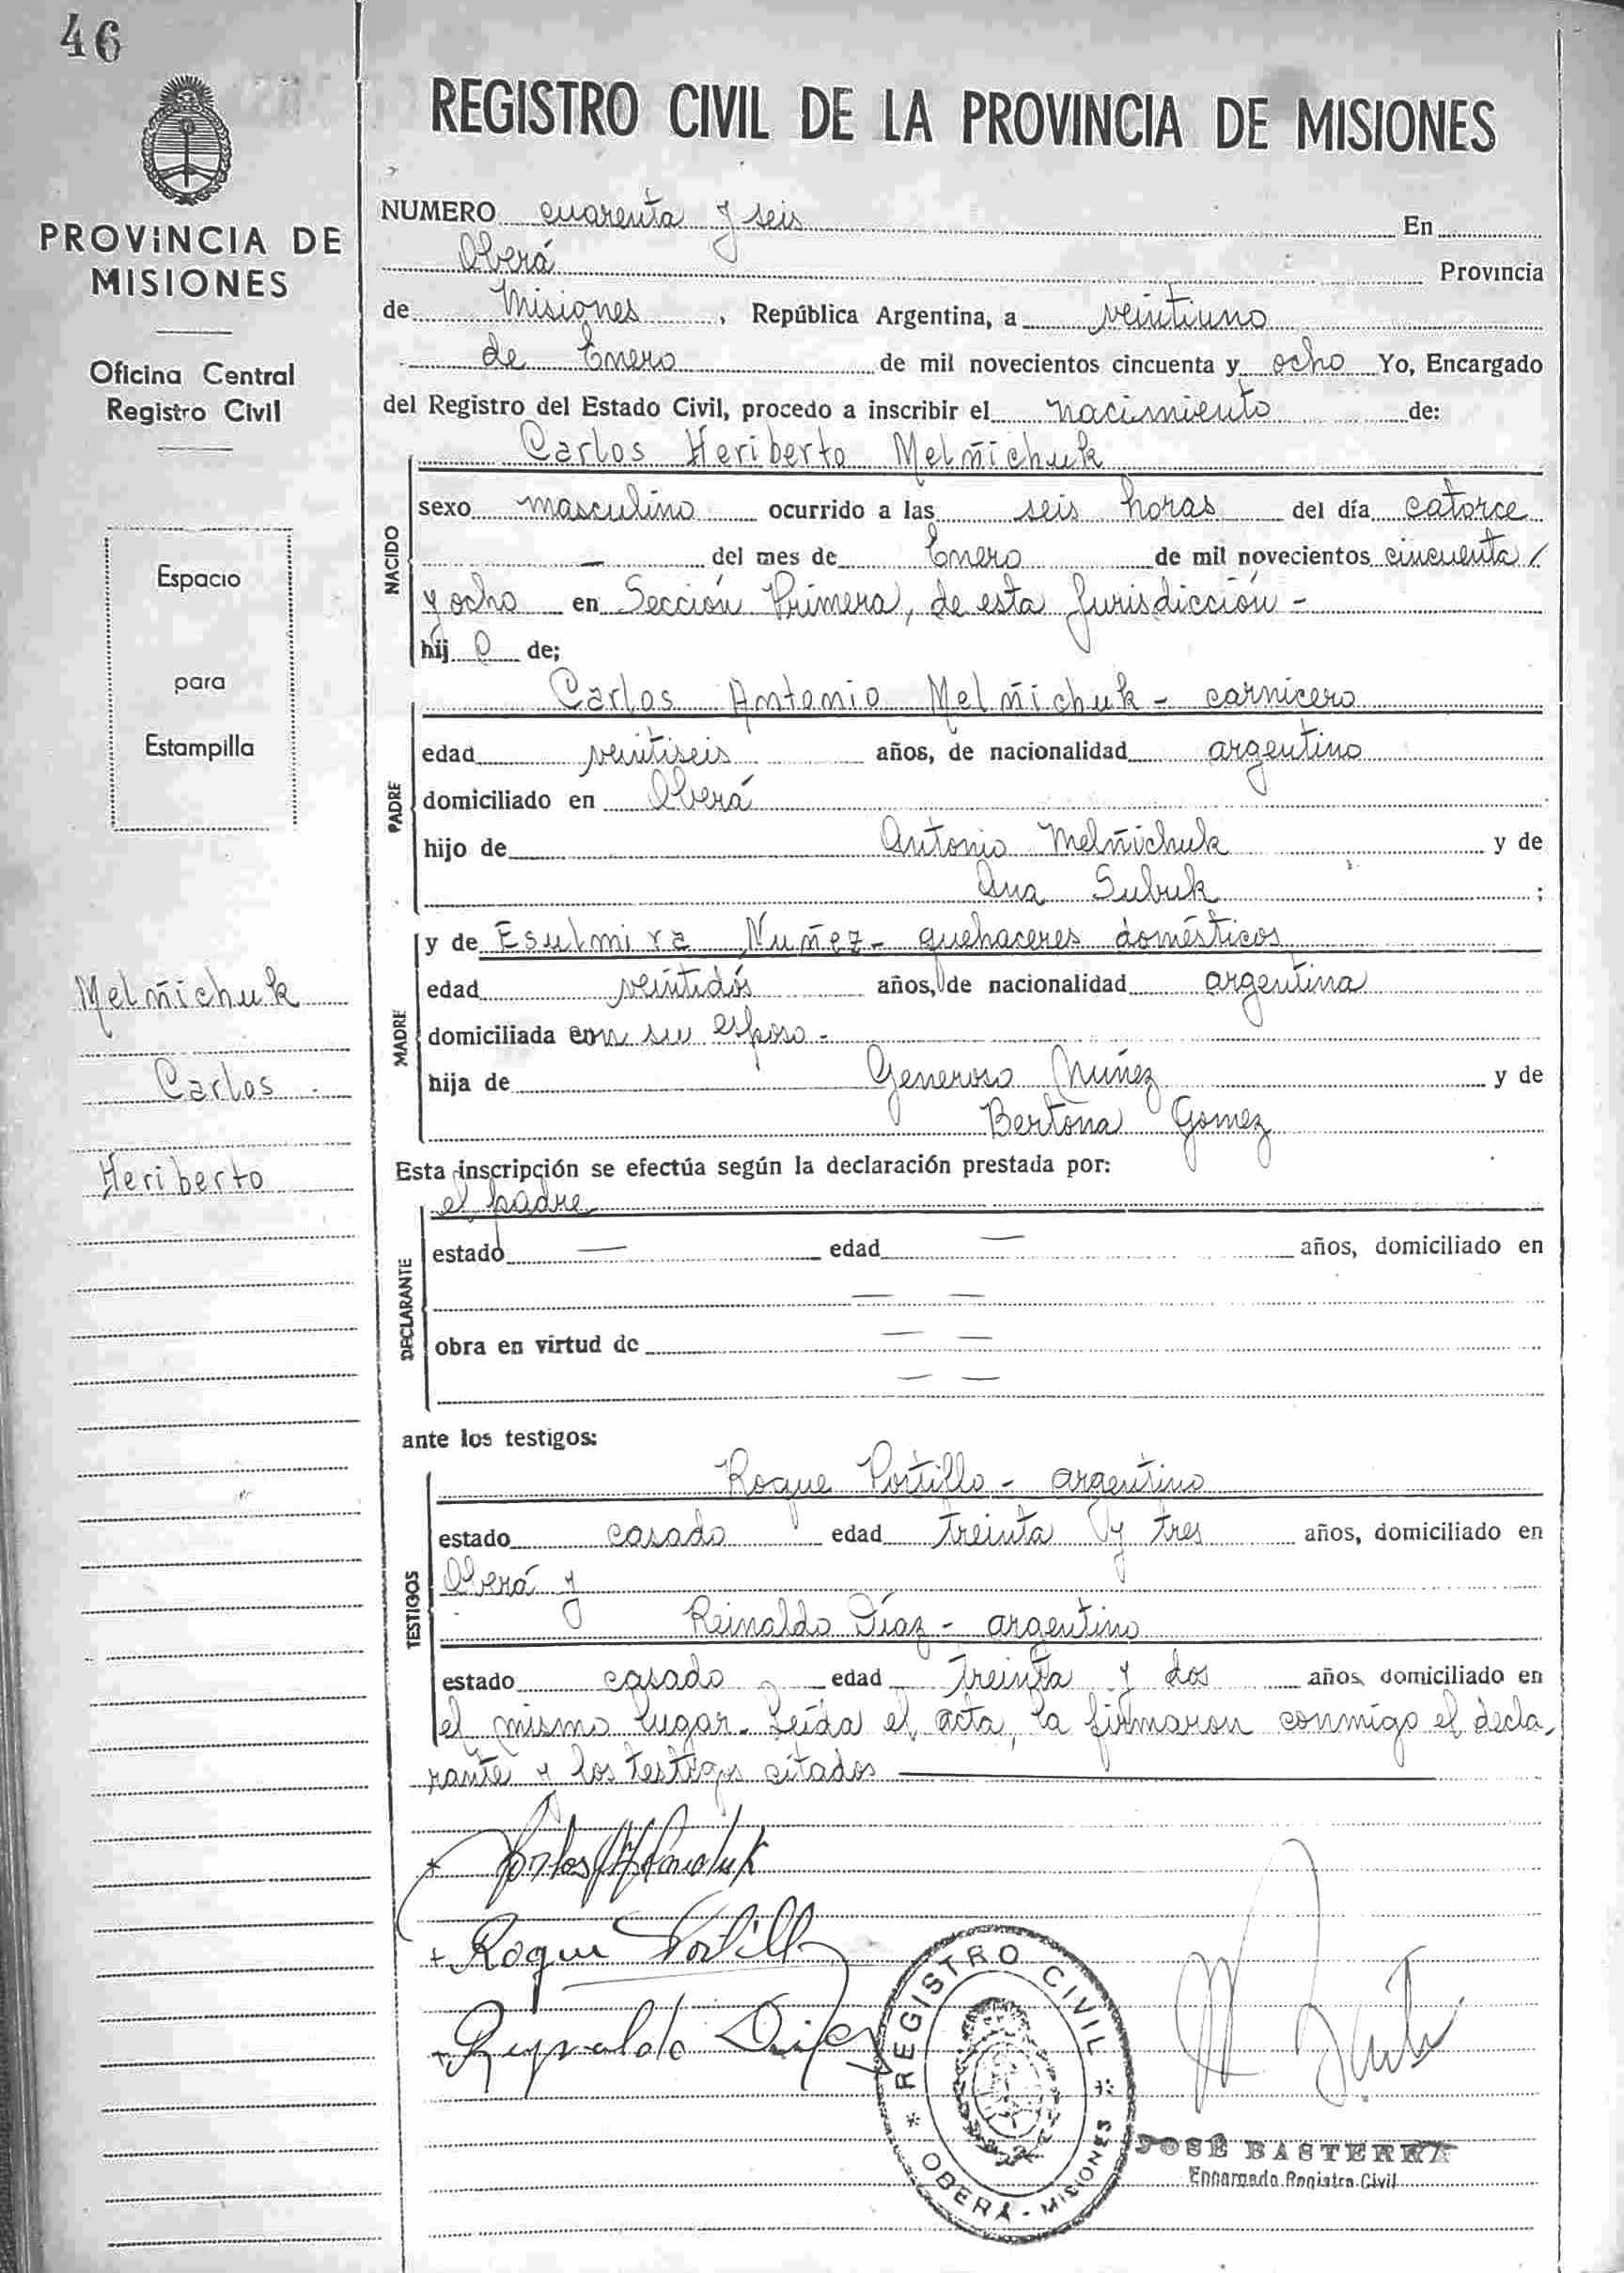 46
REGISTRO CIVIL DE LA PROVINCIA DE MISIONES
PROVINCIA DE
MISIONES
Oficina Central
Registro Civil
Espacio
para
Estampilla
Melñichuk
Carlos
Heriberto
NUMERO cuarenta y seis En
Oberá Provincia
de Misiones, República Argentina, a veintiuno
de Enero de mil novecientos cincuenta y ocho Yo, Encargado
del Registro del Estado Civil, procedo a inscribir el nacimiento de:
Carlos Heriberto Melñichuk
NACIDO
sexo masculino ocurrido a las seis horas del día catorce
— del mes de Enero de mil novecientos cincuenta /
y ocho en Sección Primera, de esta Jurisdicción -
hij o de;
Carlos Antonio Melñichuk - carnicero
PADRE
edad veintiseis años, de nacionalidad argentino
domiciliado en Oberá
hijo de Antonio Melñichuk y de
Ana Subuk ;
y de Esulmira Nuñez - quehaceres domésticos
MADRE
edad veintidós años, de nacionalidad argentina
domiciliada con su esposo -
hija de Generoso Núñez y de
Bertona Gomez
Esta inscripción se efectúa según la declaración prestada por:
el padre
DECLARANTE
estado — edad — años, domiciliado en
— —
obra en virtud de — —
— —
ante los testigos:
Roque Portillo - argentino
TESTIGOS
estado casado edad treinta y tres años, domiciliado en
Oberá y
Reinaldo Díaz - argentino
estado casado edad treinta y dos años, domiciliado en
el mismo lugar. Leída el acta, la firmaron conmigo el decla-
rante y los testigos citados
Roque Portillo
Reynaldo Diaz
REGISTRO CIVIL
OBERÁ - MISIONES
JOSÉ BASTERRA
Encargado Registro Civil